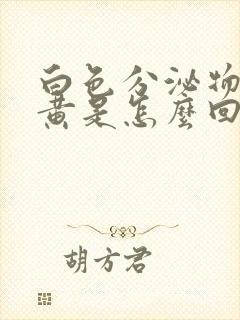 白色分泌物
黄是怎麼回
胡方君